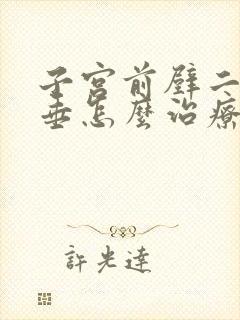 子宮前壁二
垂怎麼治療
許光達